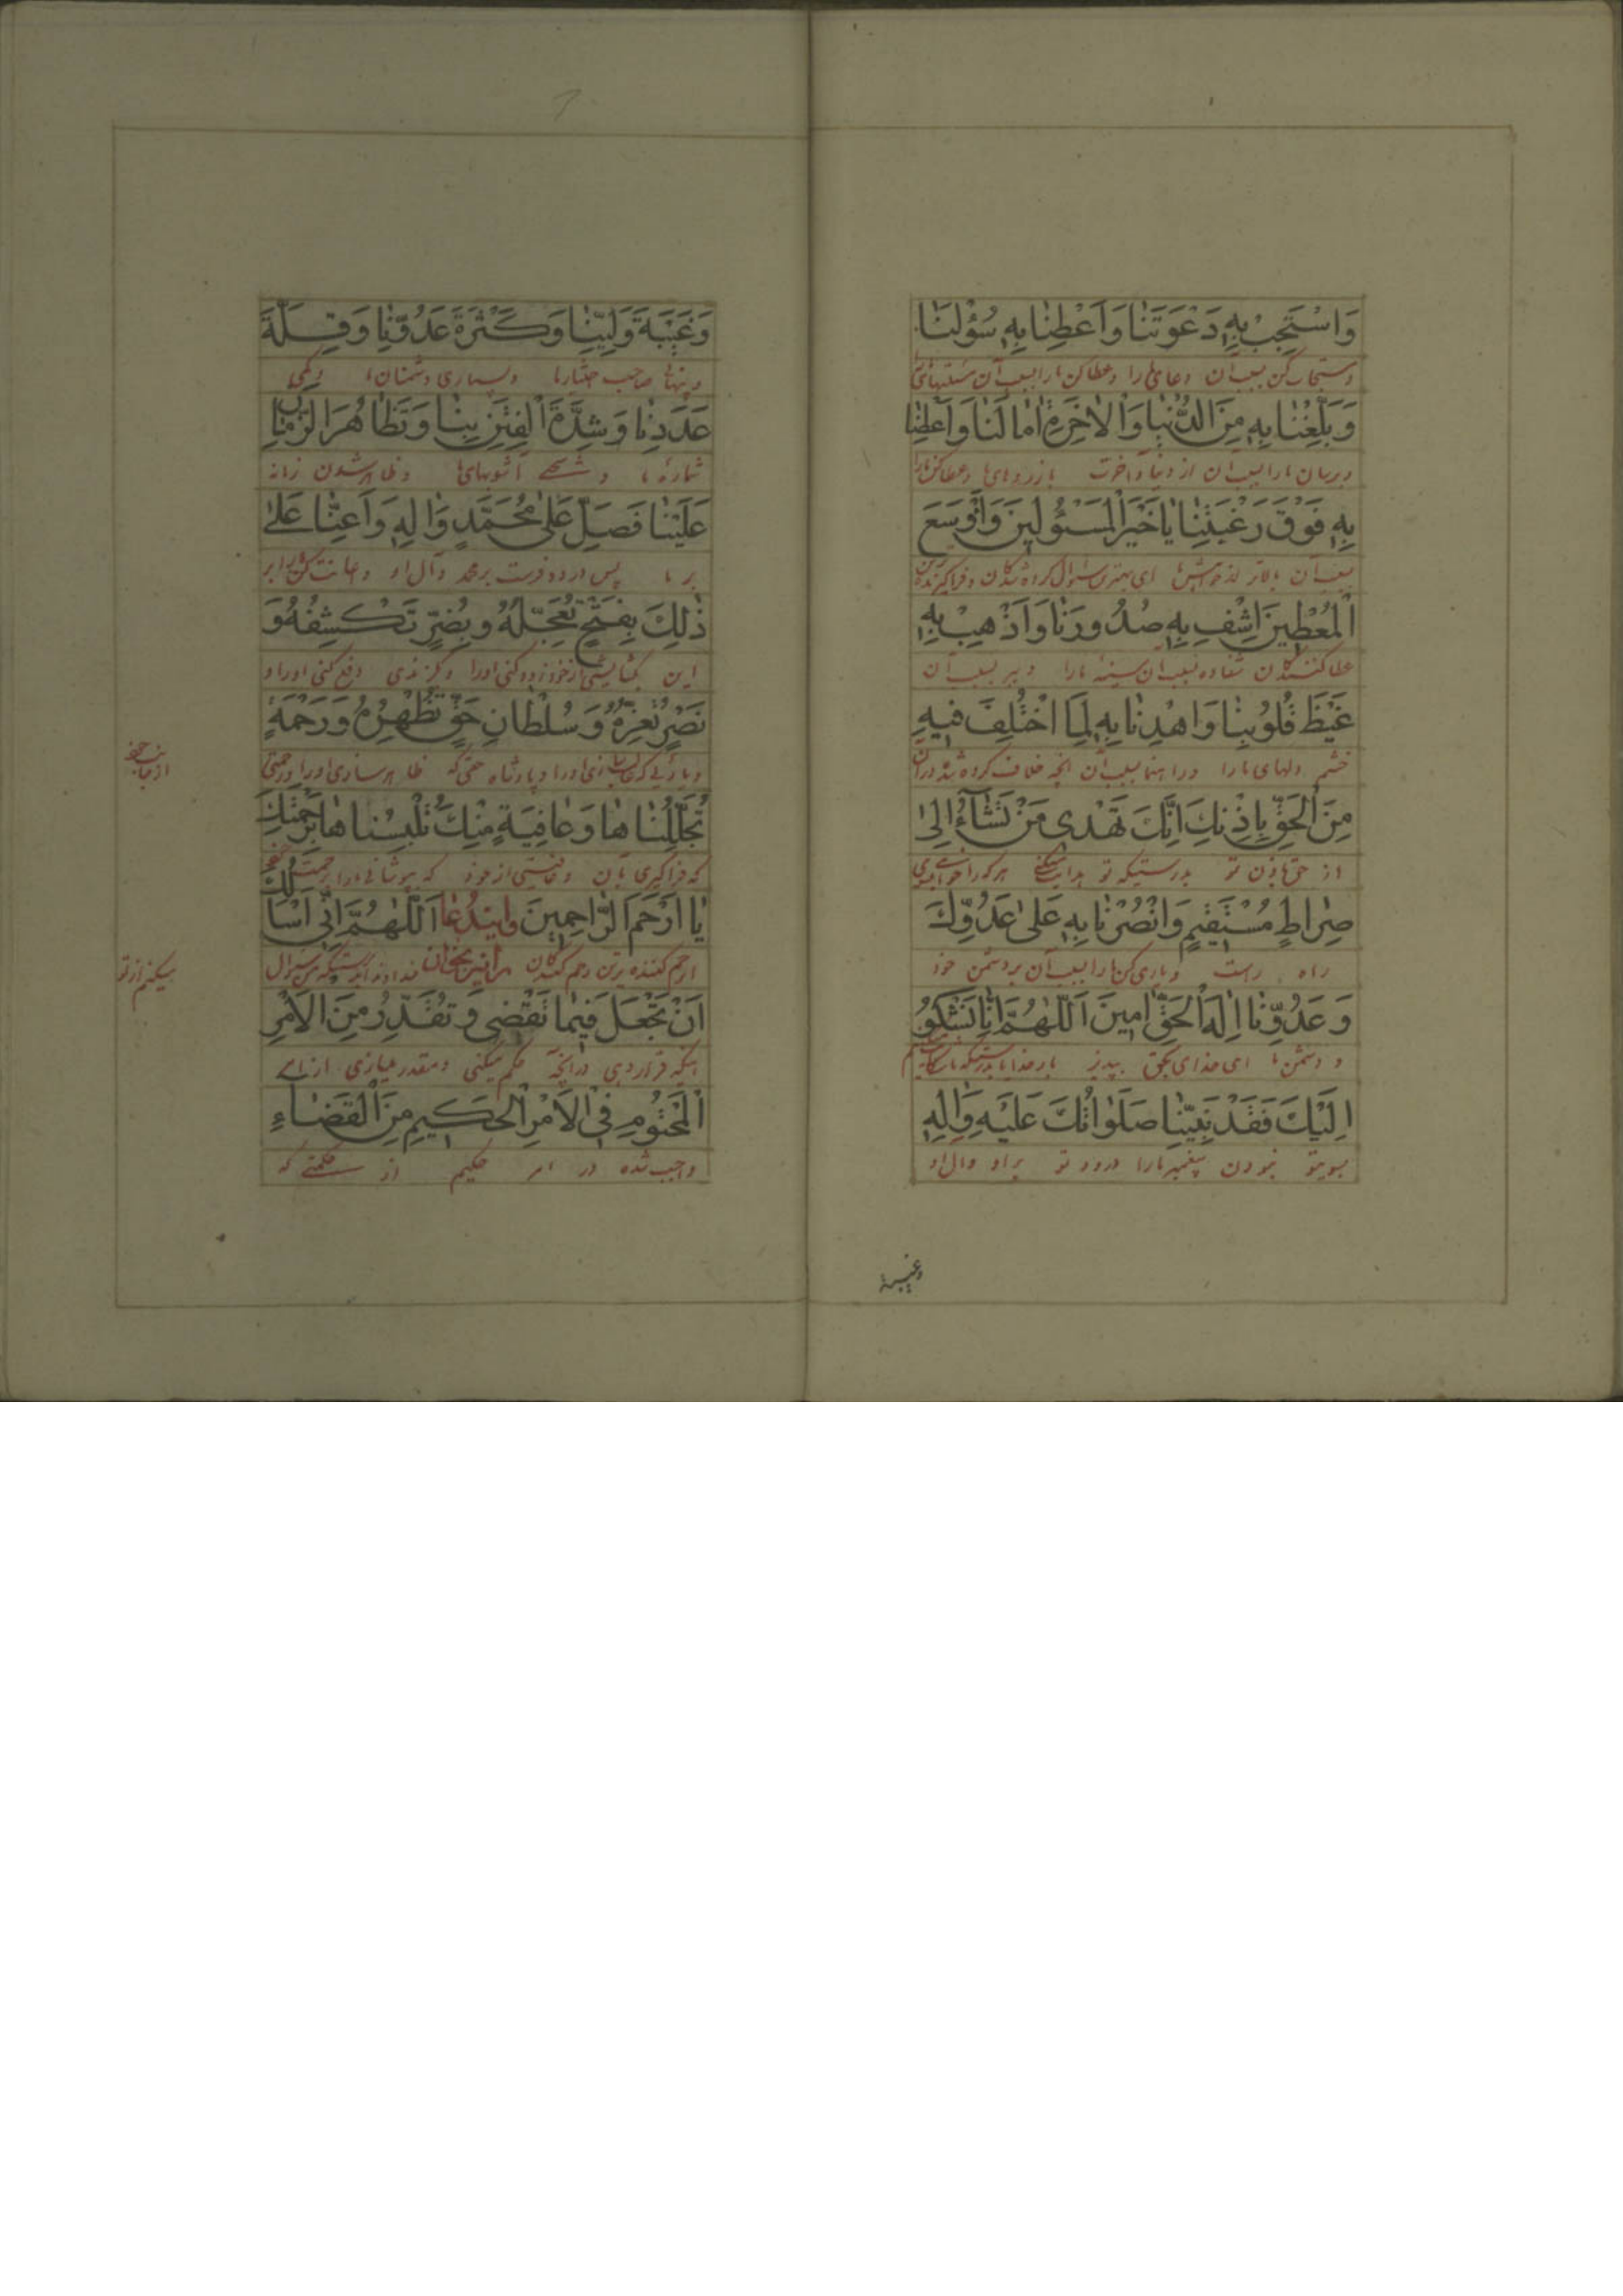 وَاسْتَجِبْ بِهِ دَعْوَتَنَا وَاَعْطِنَا بِهِ سُؤْلَنَا
و مستجاب کن بسبب آن دعای ما را و عطا کن ما را بسبب آن
وَبَلِّغْنَا بِهِ مِنَ الدُّنْيَا وَالْاٰخِرَةِ اٰمَالَنَا وَاَعْطِنَا
و برسان ما را بسبب آن از دنیا و آخرت بآرزوهای ما و عطا کن ما را
بِهِ فَوْقَ رَغْبَتِنَا يَا خَيْرَ الْمَسْئُولِينَ وَاَوْسَعَ
بسبب آن بالاتر از خواهش ما ای بهترین سئوال کرده شدگان و فراگیرنده
الْمُعْطِينَ اشْفِ بِهِ صُدُورَنَا وَاَذْهِبْ بِهِ
عطا کنندگان شفا ده بسبب آن سینه ما را و ببر بسبب آن
غَيْظَ قُلُوبِنَا وَاهْدِنَا بِهِ لِمَا اخْتُلِفَ فِيهِ
خشم دلهای ما را و راهنما بسبب آن آنچه خلاف کرده شده در آن
مِنَ الْحَقِّ بِاِذْنِكَ اِنَّكَ تَهْدِى مَنْ تَشَآءُ اِلٰى
از حق باذن تو بدرستیکه تو هدایت میکنی هر که را خواهی بسوی
صِرَاطٍ مُسْتَقِيمٍ وَانْصُرْنَا بِهِ عَلٰى عَدُوِّكَ
راه راست و یاری کن ما را بسبب آن بر دشمن خود
وَ عَدُوِّنَا اِلٰهَ الْحَقِّ اٰمِينَ اَللّٰهُمَّ اِنَّا نَشْكُو
و دشمن ما ای خدای بحق بپذیر بار خدایا بدرستیکه ما شکایت میکنیم
اِلَيْكَ فَقْدَ نَبِيِّنَا صَلَوَاتُكَ عَلَيْهِ وَاٰلِهِ
بسویتو نبودن پیغمبر ما را درود تو بر او و آل او
وغیبة
وَغَيْبَةَ وَلِيِّنَا وَكَثْرَةَ عَدُوِّنَا وَقِلَّةَ
صاحب اختیار ما و بسیاری دشمنان ما و کمی
عَدَدِنَا وَشِدَّةَ الْفِتَنِ بِنَا وَتَظَاهُرَ الزَّمَانِ
شماره ما و سختی آشوبهای ما و ظاهر شدن زمانه
عَلَيْنَا فَصَلِّ عَلٰى مُحَمَّدٍ وَاٰلِهِ وَاَعِنَّا عَلٰى
بر ما پس درود فرست بر محمد و آل او و اعانت کن ما را بر
ذٰلِكَ بِفَتْحٍ تُعَجِّلُهُ وَبِضُرٍّ تَكْشِفُهُ وَ
این بگشایشی از خود زود کنی او را و گزندی دفع کنی او را و
نَصْرٍ تُعِزُّهُ وَسُلْطَانِ حَقٍّ تُظْهِرُهُ وَرَحْمَةٍ
او را و پادشاه حقی که ظاهر سازی او را و رحمتی
از جانب خود
تُجَلِّلُنَاهَا وَعَافِيَةٍ مِنْكَ تُلْبِسُنَاهَا بِرَحْمَتِكَ
که فراگیری بآن و عافیتی از خود که بپوشانی ما را برحمت خود
يَا اَرْحَمَ الرَّاحِمِينَ و ایندعا اَللّٰهُمَّ اِنِّى اَسْاَلُكَ
ای رحم کننده ترین رحم کنندگان را نیز بخوان خداوندا بدرستیکه من سئوال
میکنم از تو
اَنْ تَجْعَلَ فِيمَا تَقْضِى وَتُقَدِّرُ مِنَ الْاَمْرِ
اینکه قرار دهی در آنچه حکم میکنی و مقدر میسازی از امر
الْمَحْتُومِ فِى الْاَمْرِ الْحَكِيمِ مِنَ الْقَضَاءِ
واجب شده در امر حکیم از حکمتی که